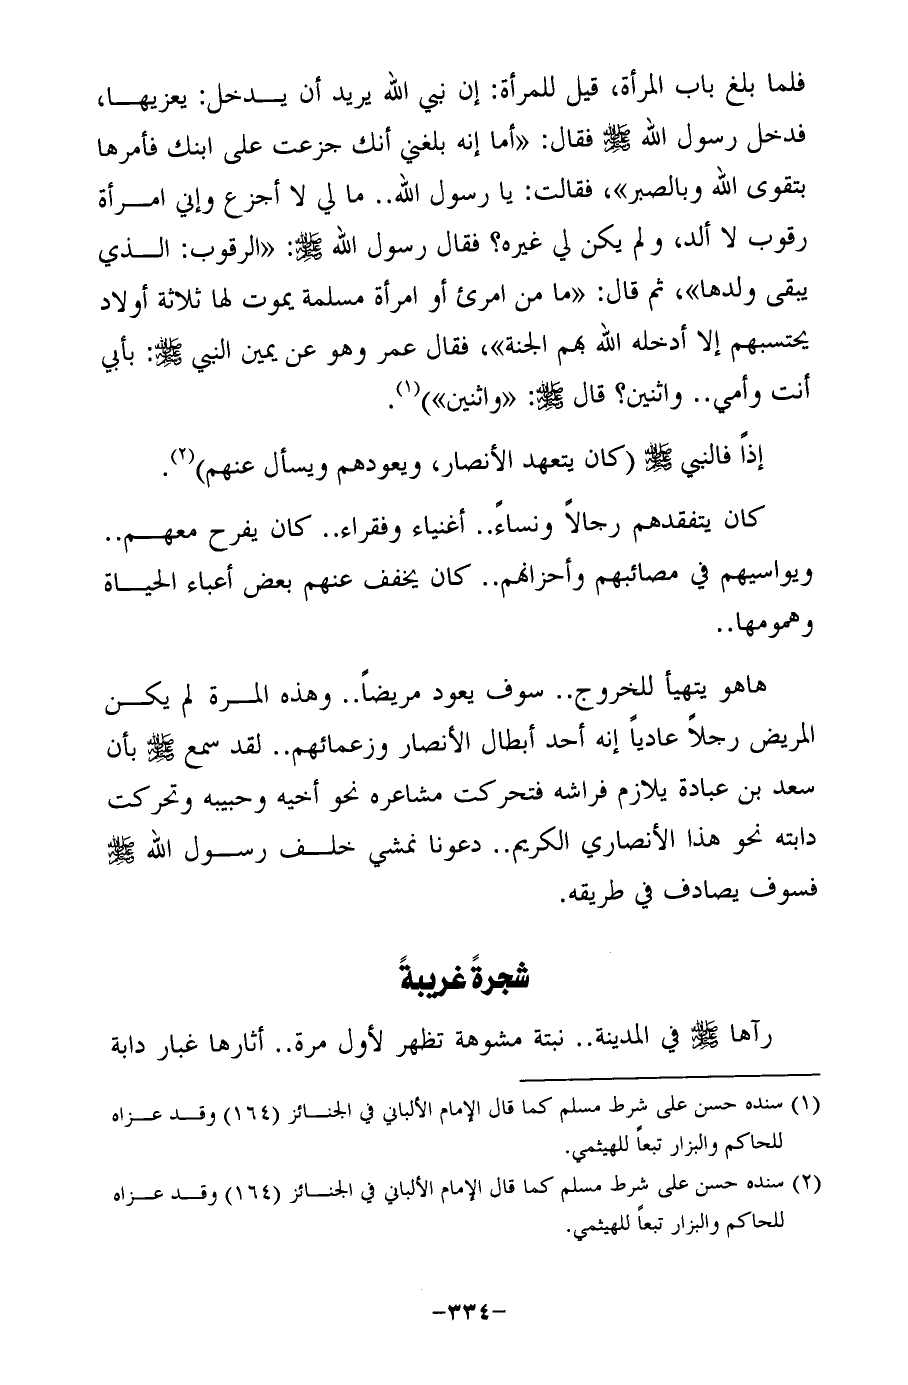 فلما بلغ باب المرأة، قيل للمرأة: إن نبي الله يريد أن يـــدخل: يعزيهـــا،
فدخل رسول الله ﷺ فقال: «أما إنه بلغني أنك جزعت على ابنك فأمرها
بتقوى الله وبالصبر»، فقالت: يا رسول الله.. ما لي لا أجزع وإني امـــرأة
رقوب لا ألد، ولم يكن لي غيره؟ فقال رسول الله ﷺ: «الرقوب: الـــذي
يبقى ولدها»، ثم قال: «ما من امرئ أو امرأة مسلمة يموت لها ثلاثة أولاد
يحتسبهم إلا أدخله الله بهم الجنة»، فقال عمر وهو عن يمين النبي ﷺ: بأبي
أنت وأمي.. واثنين؟ قال ﷺ: «واثنين»)(١).
إذاً فالنبي ﷺ (كان يتعهد الأنصار، ويعودهم ويسأل عنهم)(٢).
كان يتفقدهم رجالاً ونساءً.. أغنياء وفقراء.. كان يفرح معهـــم..
ويواسيهم في مصائبهم وأحزانهم.. كان يخفف عنهم بعض أعباء الحيـــاة
وهمومها..
هاهو يتهيأ للخروج.. سوف يعود مريضاً.. وهذه المـــرة لم يكـــن
المريض رجلاً عادياً إنه أحد أبطال الأنصار وزعمائهم.. لقد سمع ﷺ بأن
سعد بن عبادة يلازم فراشه فتحركت مشاعره نحو أخيه وحبيبه وتحركت
دابته نحو هذا الأنصاري الكريم.. دعونا نمشي خلـــف رســـول الله ﷺ
فسوف يصادف في طريقه.
شجرةً غريبةً
رآها ﷺ في المدينة.. نبتة مشوهة تظهر لأول مرة.. أثارها غبار دابة
(١) سنده حسن على شرط مسلم كما قال الإمام الألباني في الجنـــائز (١٦٤) وقـــد عـــزاه
للحاكم والبزار تبعاً للهيثمي.
(٢) سنده حسن على شرط مسلم كما قال الإمام الألباني في الجنـــائز (١٦٤) وقـــد عـــزاه
للحاكم والبزار تبعاً للهيثمي.
-٣٣٤-